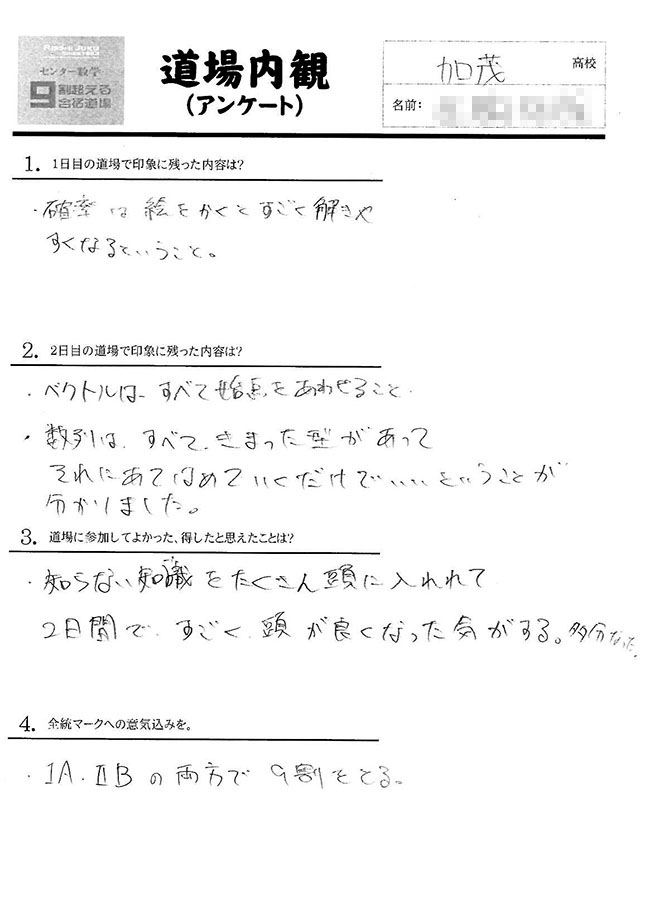 センター数学
9割超える
合宿道場
道場内観
(アンケート)
加茂 高校
名前:
1. 1日目の道場で印象に残った内容は?
・確率は絵をかくとすごく解きや
すくなるということ。
2. 2日目の道場で印象に残った内容は?
・ベクトルは、すべて始点をあわせること.
・数列は、すべて、きまった型があって
それにあてはめていくだけでいいということが
分かりました。
3. 道場に参加してよかった、得したと思えたことは?
・知らない知識をたくさん頭に入れれて
2日間で、すごく、頭が良くなった気がする。多分なった.
4. 全統マークへの意気込みを。
・IA.ⅡBの両方で9割をとる。